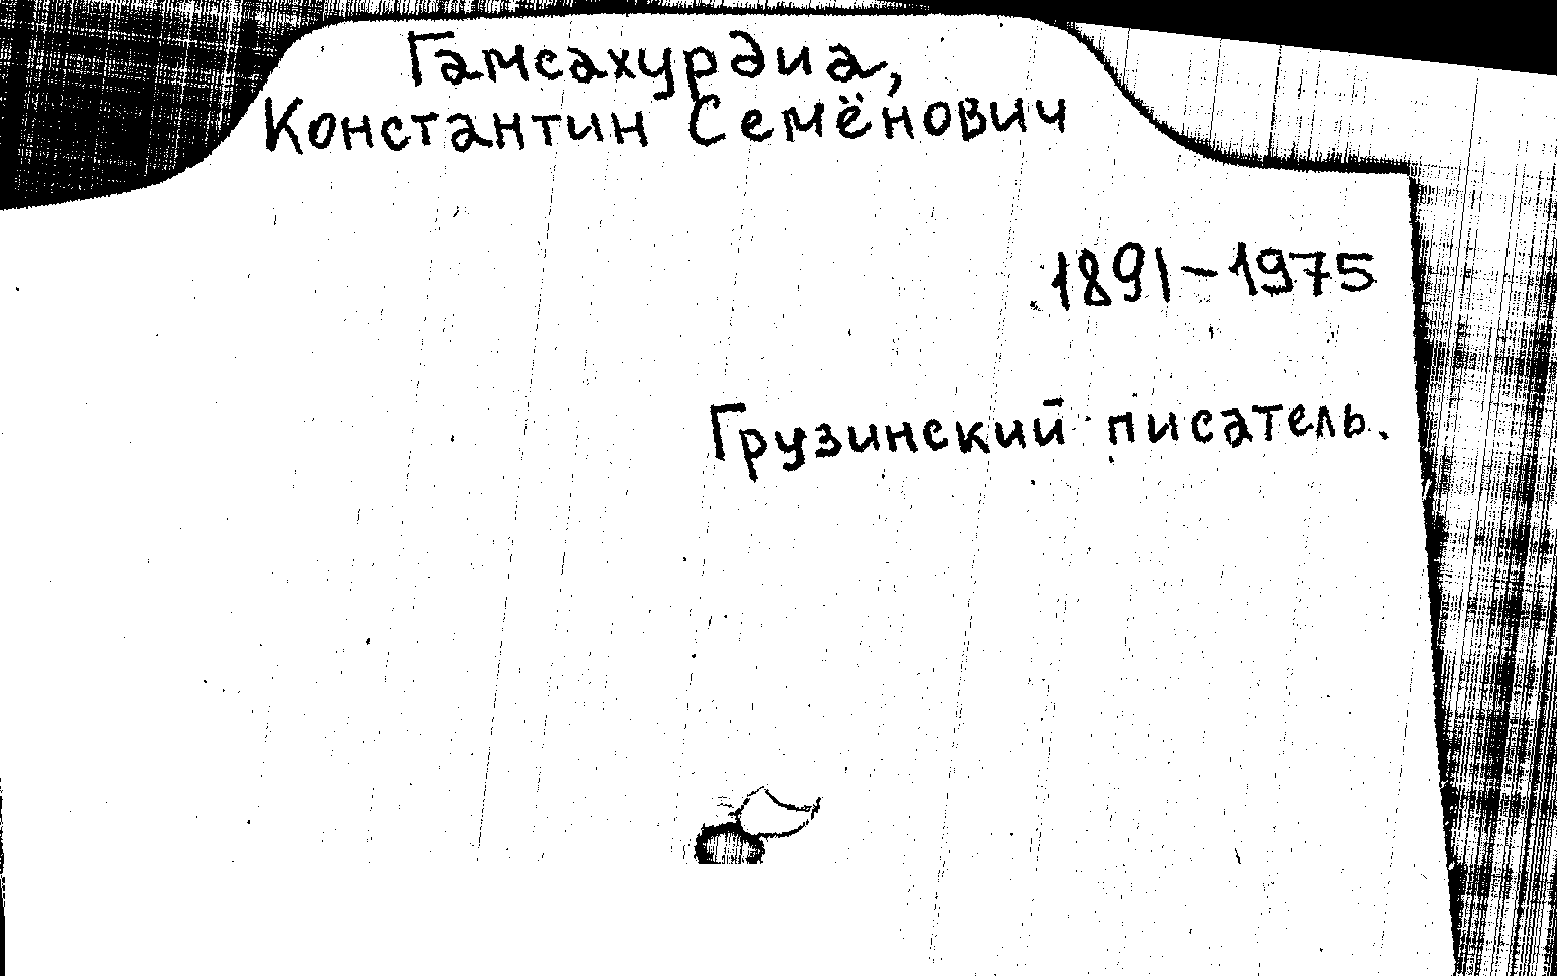 Гамсахурдиа,
Константин Семёнович
1891-1975
Грузинский писатель.